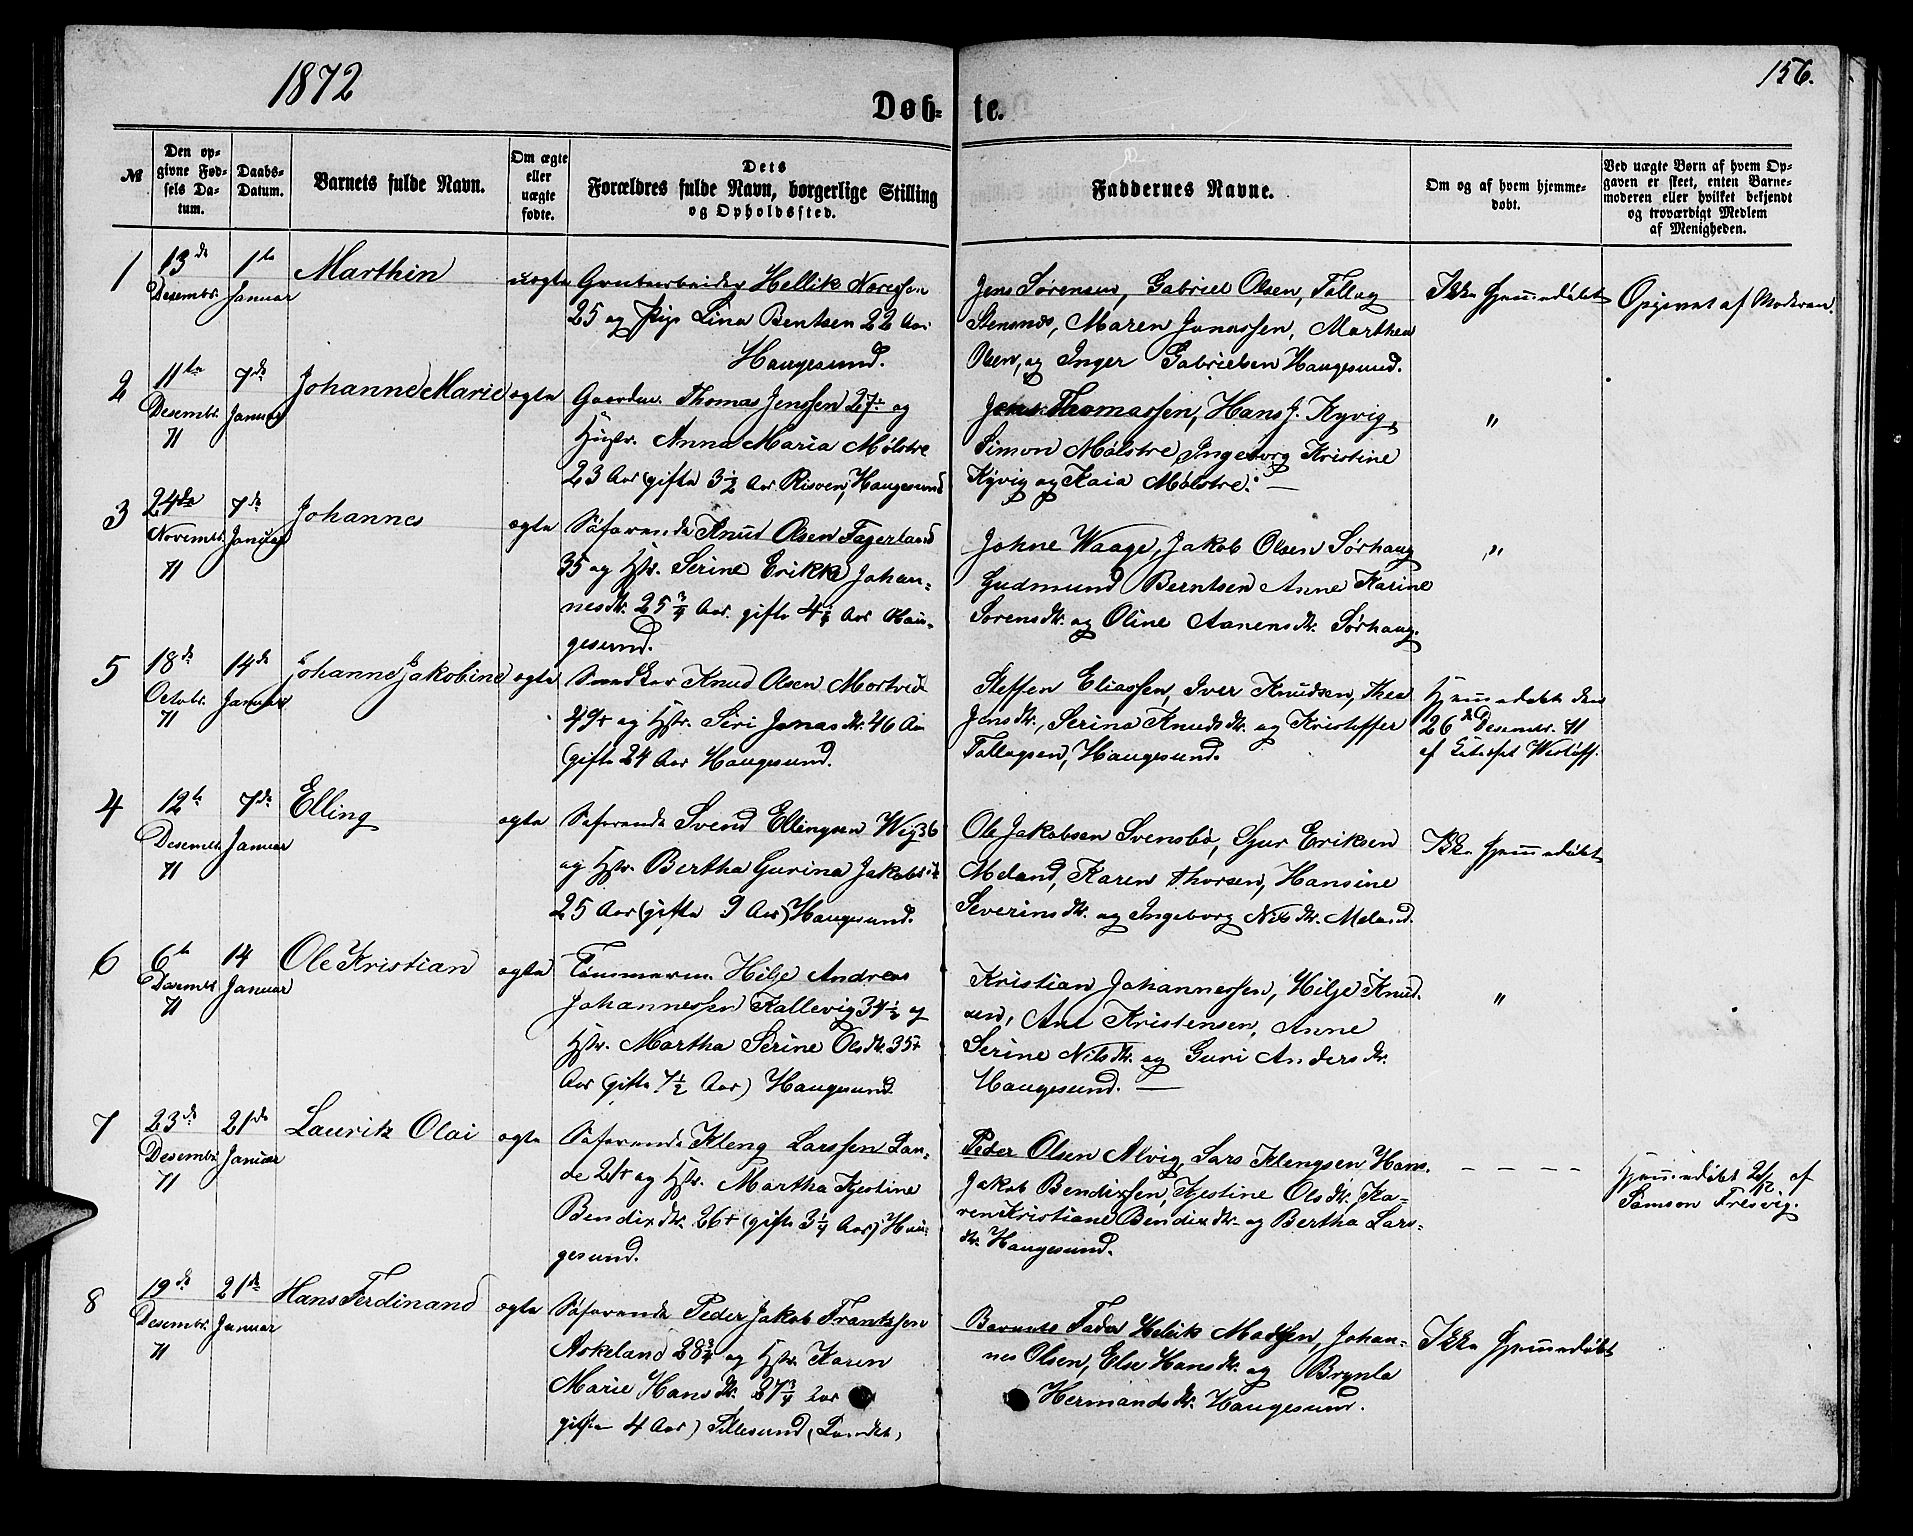 1872
156.
Døb- te.
№
Den op-
givne Fød-
sels Da-
tum.
Daabs-
Datum.
Barnets fulde Navn.
Om ægte
eller
uægte
fødte.
Dets
Forældres fulde Navn, borgerlige Stilling
og Opholdssted.
Faddernes Navne.
Om og af hvem hjemme-
døbt.
Ved uægte Børn af hvem Op-
gaven er skeet, enten Barne-
moderen eller hvilket bekjendt
og troværdigt Medlem
af Menigheden.
1
13de
Desembr.
1te
Januar
Marthin
uægte
Grubearbeider Hellik
25 og Pige Lina Bentsen 22 Aar
Haugesund.
Jens Sørensen, Gabriel Olsen, Tollag
Maren Jonassen, Marthea
Olsen, og Inger Gabrielsen Haugesund.
Ikke hjemmedøbt
Opgivet af Moderen.
2
11te
Desembr.
71
7de
Januar
Johanne Marie
ægte
Thomas Jenssen 27 og
Hustr. Anna Maria Mølstre
23 Aar (gifte 3½ Aar Risøen, Haugesund
Jens Thomassen, Hans J. Kyvig,
Simon Mølstre, Ingeborg Kristine
Kyvig og Kaia Mølstre. —
"
3
24de
Novembr.
71
7de
Januar
Johannes
ægte
Søfarende Knud Olsen Fagerland
35 og Hstr. Serine Erikke Johan-
nesdtr. 25¾ Aar. gifte 4¼ Aar Hau-
gesund.
Johne Waage, Jakob Olsen Sørhaug
Gudmund Berntsen Anne Karine
Sørensdtr. og Oline Aanensdtr. Sørhaug.
"
5
18de
Octobr.
71
14de
Januar
Johanne Jakobine
ægte
Snedker Knud Olsen
49+ og Hstr. Siri Jonasdtr. 46 Aar
(gifte 24 Aar Haugesund.
Steffen Eliassen, Iver Knudsen, Thea
Jensdtr., Serina Knudsdtr. og Kristoffer
Tollagsen, Haugesund.
Hjemmedøbt den
26de Desembr. 71
af
4
12te
Desembr.
71
7de
Januar
Elling
ægte
Søfarende Svend Ellingsen Wig 36
og Hstr. Bertha Gurina Jakobsdtr
25 Aar (gifte 9 Aar) Haugesund.
Ole Jakobsen Svensbø, Sjur Eriksen
Meland, Karen Thorsen, Hansine
Severinsdtr. og Ingeborg Nilsdtr. Meland.
Ikke hjemmedøbt
6
6te
Desembr
71
14
Januar
Ole Kristian
ægte
Tømmerm. Hilje Andreas
Johannessen Kallevig 34½ og
Hstr. Martha Serine Olsdtr. 35+
Aar (gifte 7½ Aar) Haugesund
Kristian Johannessen, Hilje Knud-
sen, Kristensen, Anne
Serine Nilsdtr. og Guri Andersdtr.
Haugesund. —
"
7
23de
Desembr.
71
21de
Januar
Lauritz Olai
ægte
Søfarende Kleng Larssen Lan-
de 21+ og Hstr. Martha Kjestine
Bendixdtr. 26+ (gifte 3¼ Aar) Hau-
gesund.
Peder Olsen Alvig, Lars Klengsen Hans
Jakob Bendixsen, Kjestine Olsdtr., Ka-
ren Kristiane Bendixdtr. og Bertha Lars-
dtr. Haugesund.
— — — —
Hjemmedøbt af
Samson Tresvig.
8
19de
Desembr.
71
21de
Januar
Hans Ferdinand
ægte
Søfarende Peder Jakob Frantzsen
Askeland 28¾ og Hstr. Karen
Marie Hansdtr. 27¾ Aar
gifte 4 Aar)
Barnets Fader Helrik Madssen, Johan-
nes Olsen, Else Hansdtr. og Brynla
Hermandsdtr. Haugesund.
Ikke hjemmedøbt